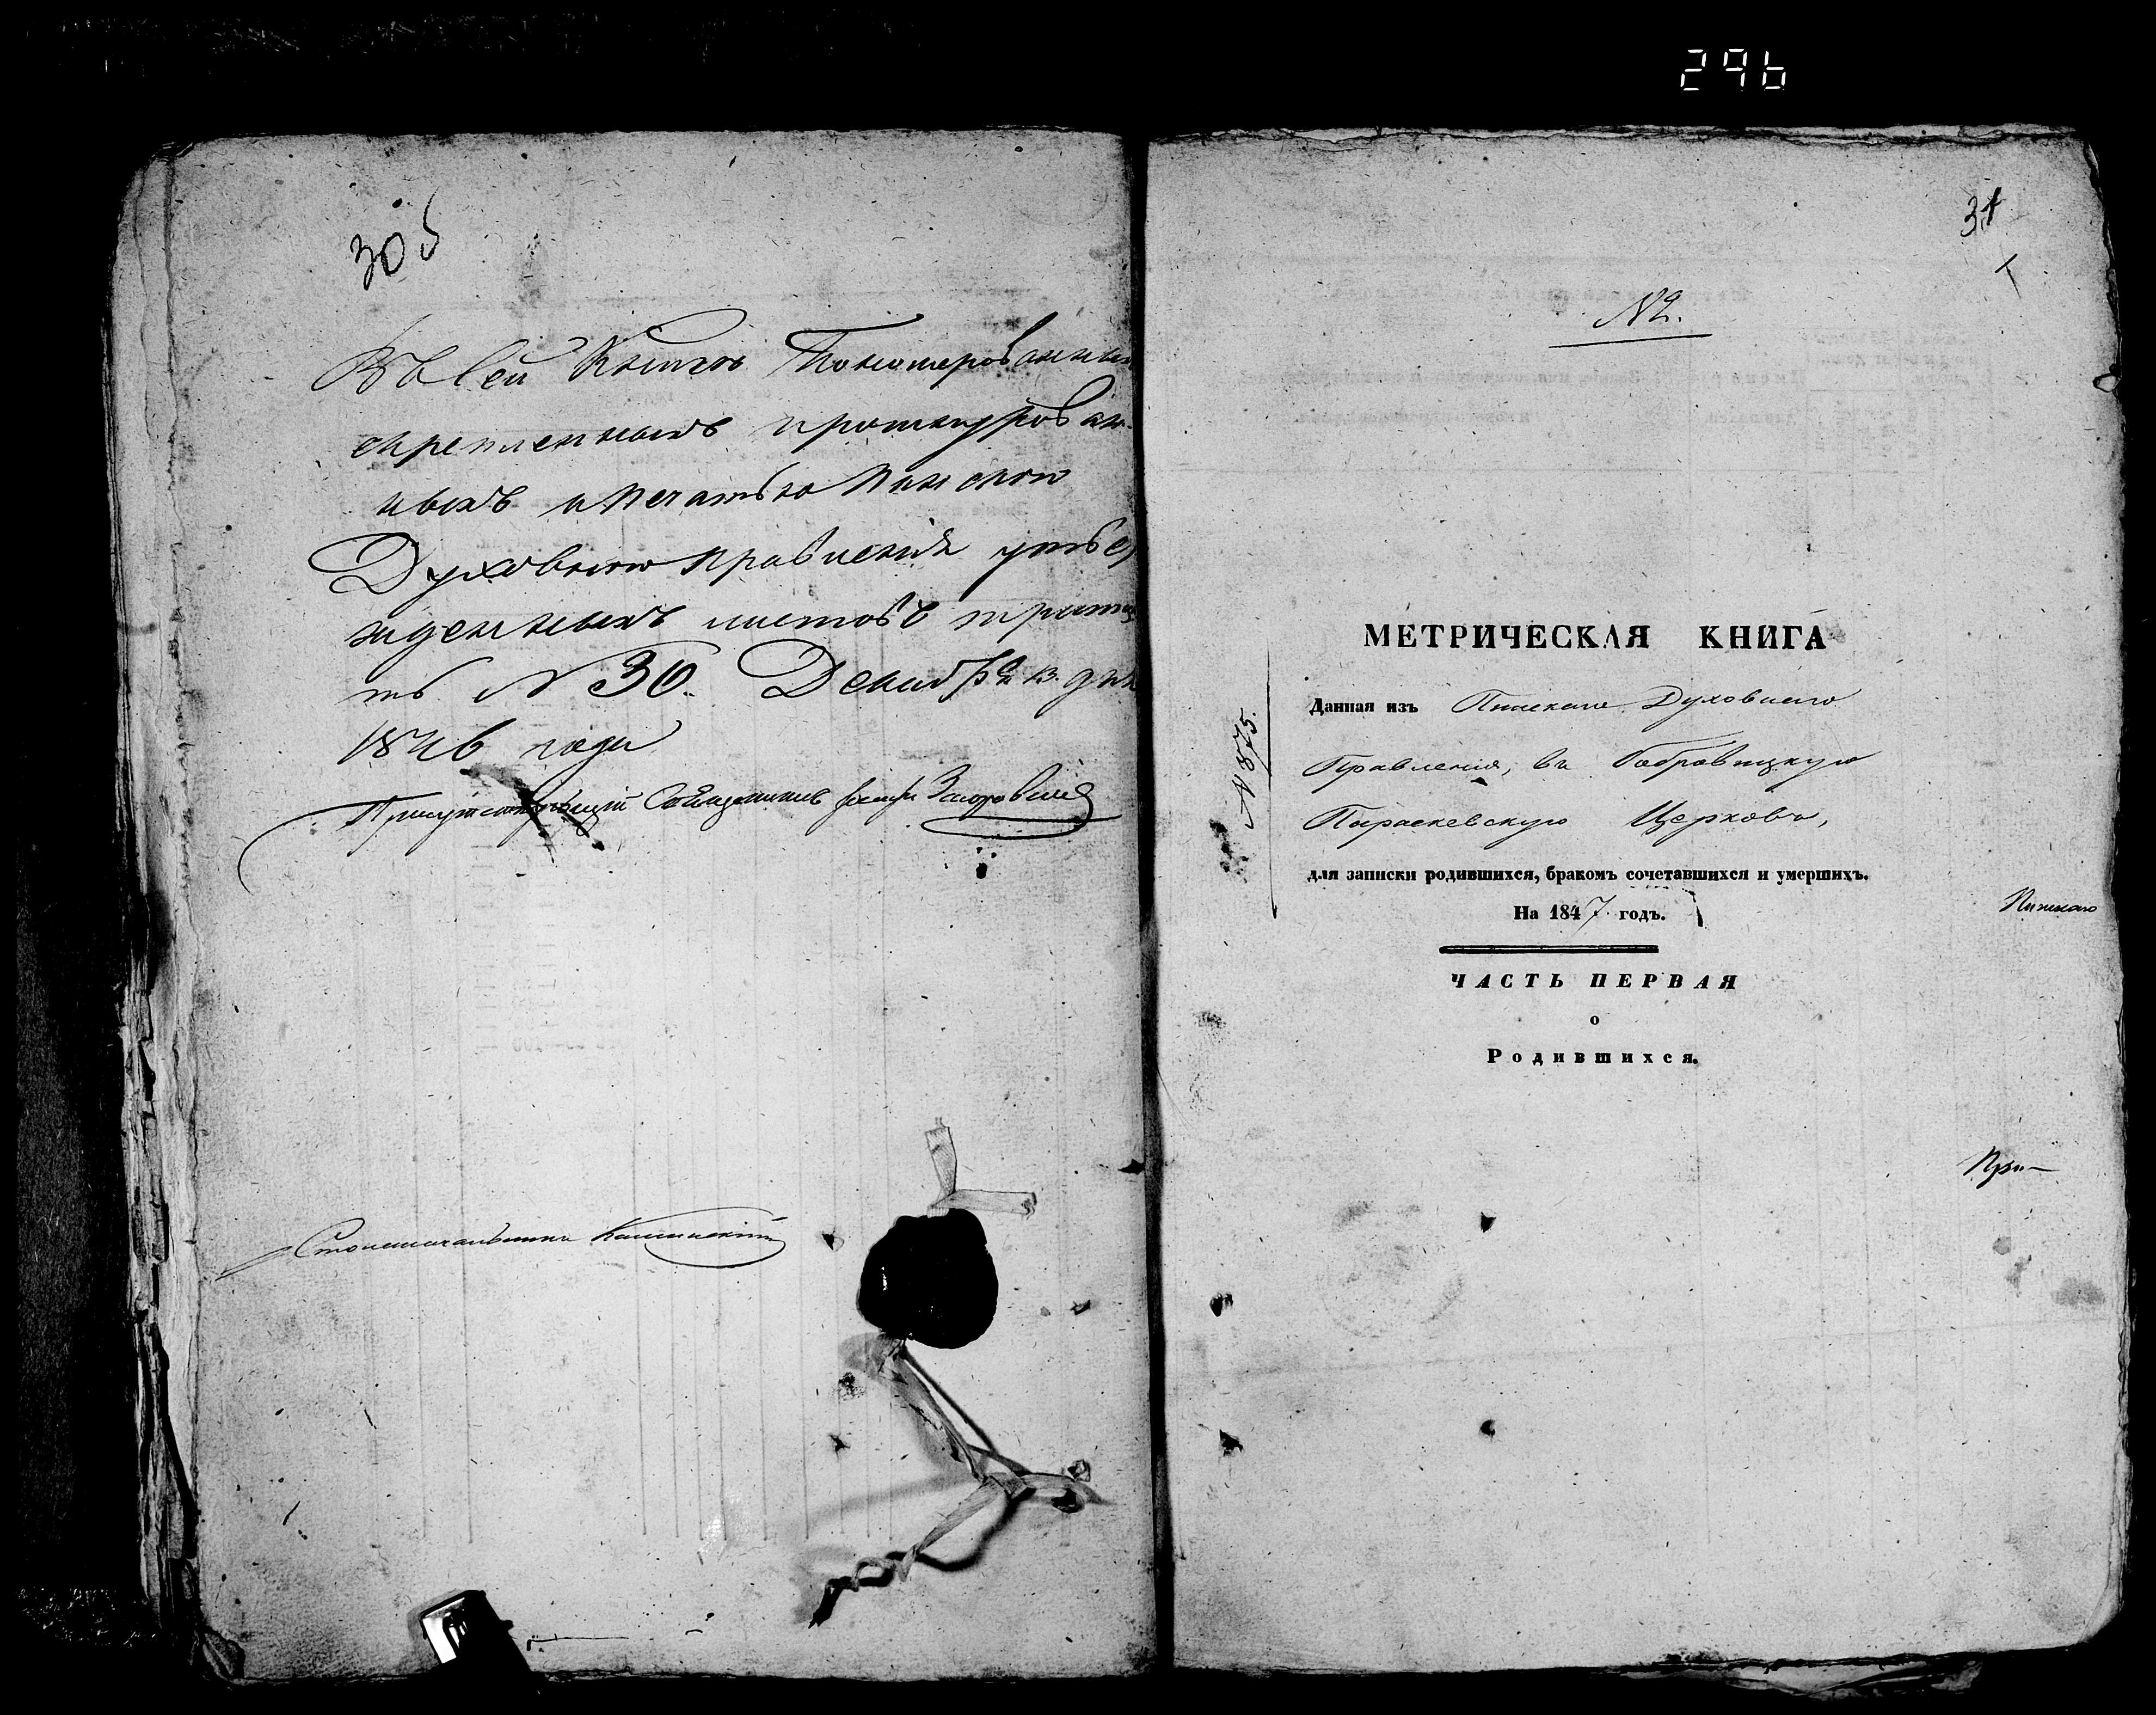 296
30 б
Въ сей Книгѣ Пономерованныхъ
скрепленныхъ прошнурован-
ныхъ и печатью Пинскаго
Духовнаго Правленія утвер
жденныхъ листовъ тритца
ть № 30. Декабря 13. дня
1846 года
Присутствующій Священникъ
Столоначальникъ Каминскій
31
№ 2.
МЕТРИЧЕСКАЯ КНИГА
№ 875.
Данная изъ Пинскаго Духовнаго
Правленія, въ Бобровицкую
Параскевскую Церковь,
для записки родившихся, бракомъ сочетавшихся и умершихъ.
На 1847 годъ.
Пинскаго
ЧАСТЬ ПЕРВАЯ
о
Родившихся.
При-